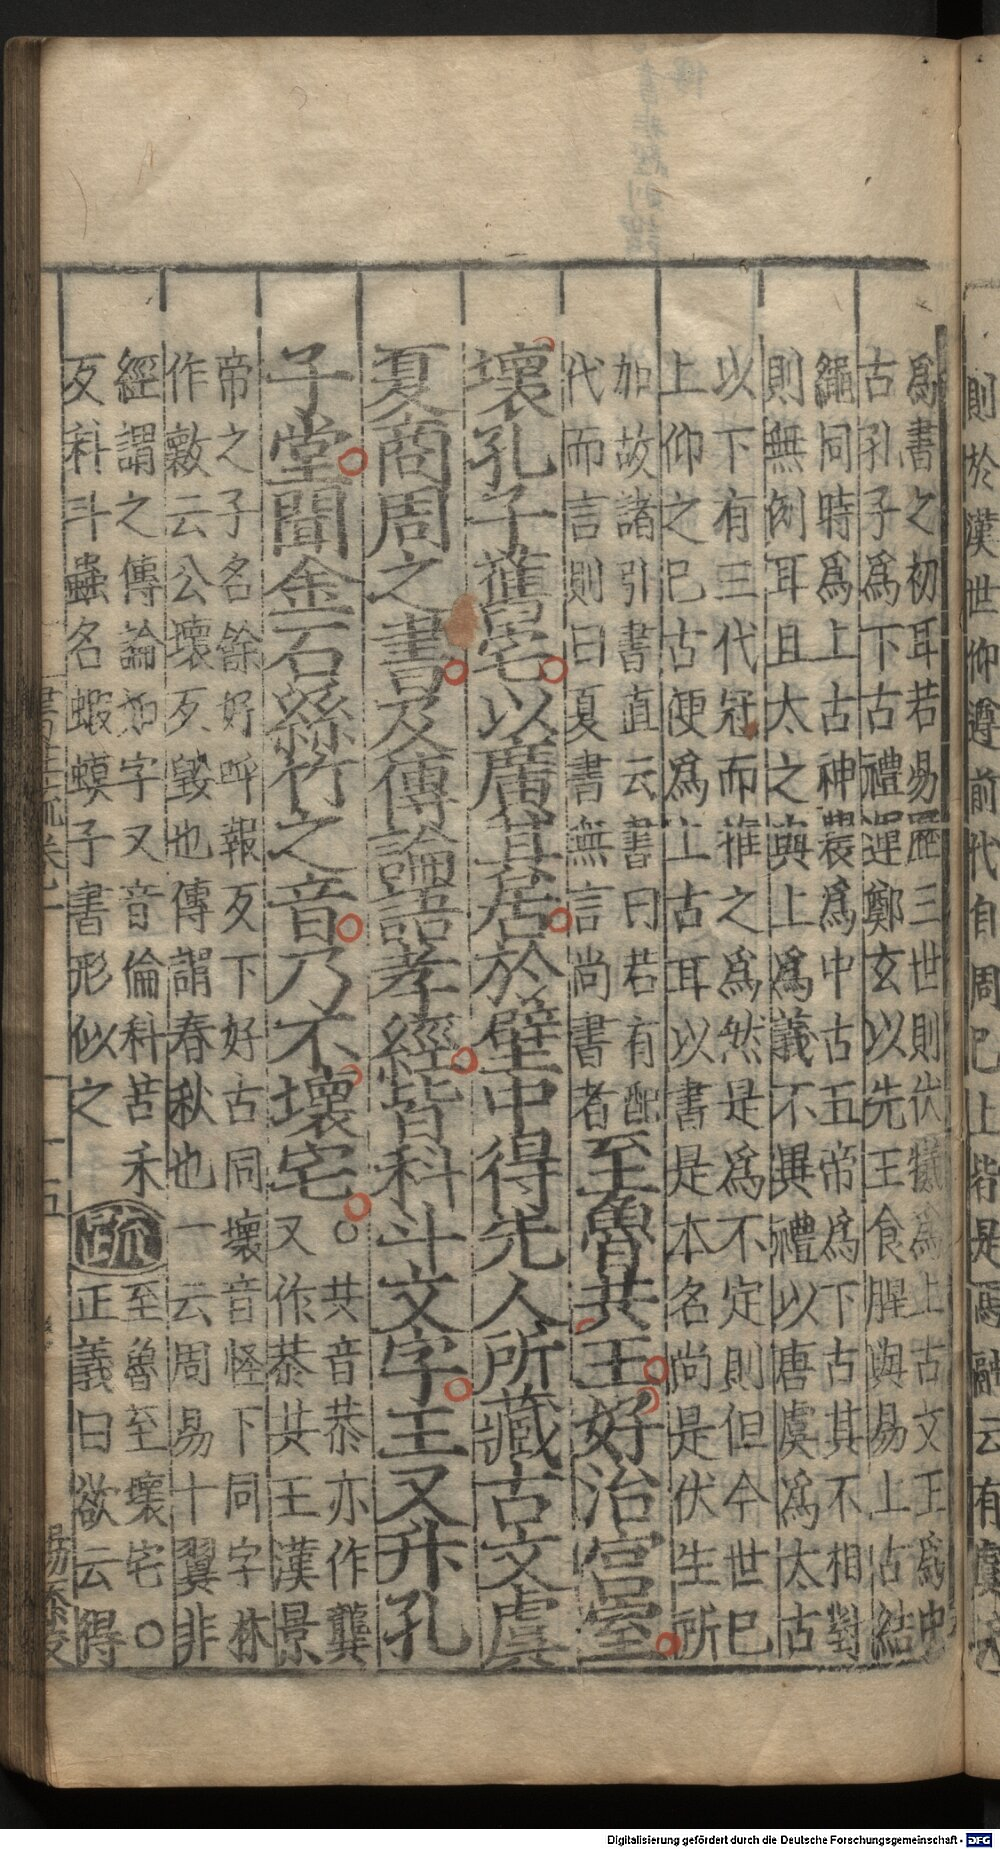 則於漢世仰遵前代自周已上皆是馬融云有虞氏
爲書之初耳若易歷三世則伏犧爲上古文王爲中
古孔子爲下古禮運鄭玄以先王食腥與易上古結
繩同時爲上古神農爲中古五帝爲下古其不相對
則無例耳且太之與上爲義不異禮以唐虞爲太古
以下有三代冠而推之爲然是爲不定則但今世已
上仰之已古便爲上古耳以書是本名尚是伏生所
加故諸引書直云書曰若有配
代而言則曰夏書無言尚書者
至魯共王好治宮室
壞孔子舊宅以廣其居於壁中得先人所藏古文虞
夏商周之書及傳論語孝經皆科斗文字王又升孔
子堂聞金石絲竹之音乃不壞宅
○共音恭亦作龔
又作恭共王漢景
帝之子名餘好呼報反下好古同壞音怪下同字林
作敦云公壞反毀也傳謂春秋也一云周易十翼非
經謂之傳論如字又音倫科苦禾
反科斗蟲名蝦蟆子書形似之
疏
至魯至壞宅○
正義曰欲云得
十五
Digitalisierung gefördert durch die Deutsche Forschungsgemeinschaft - DFG